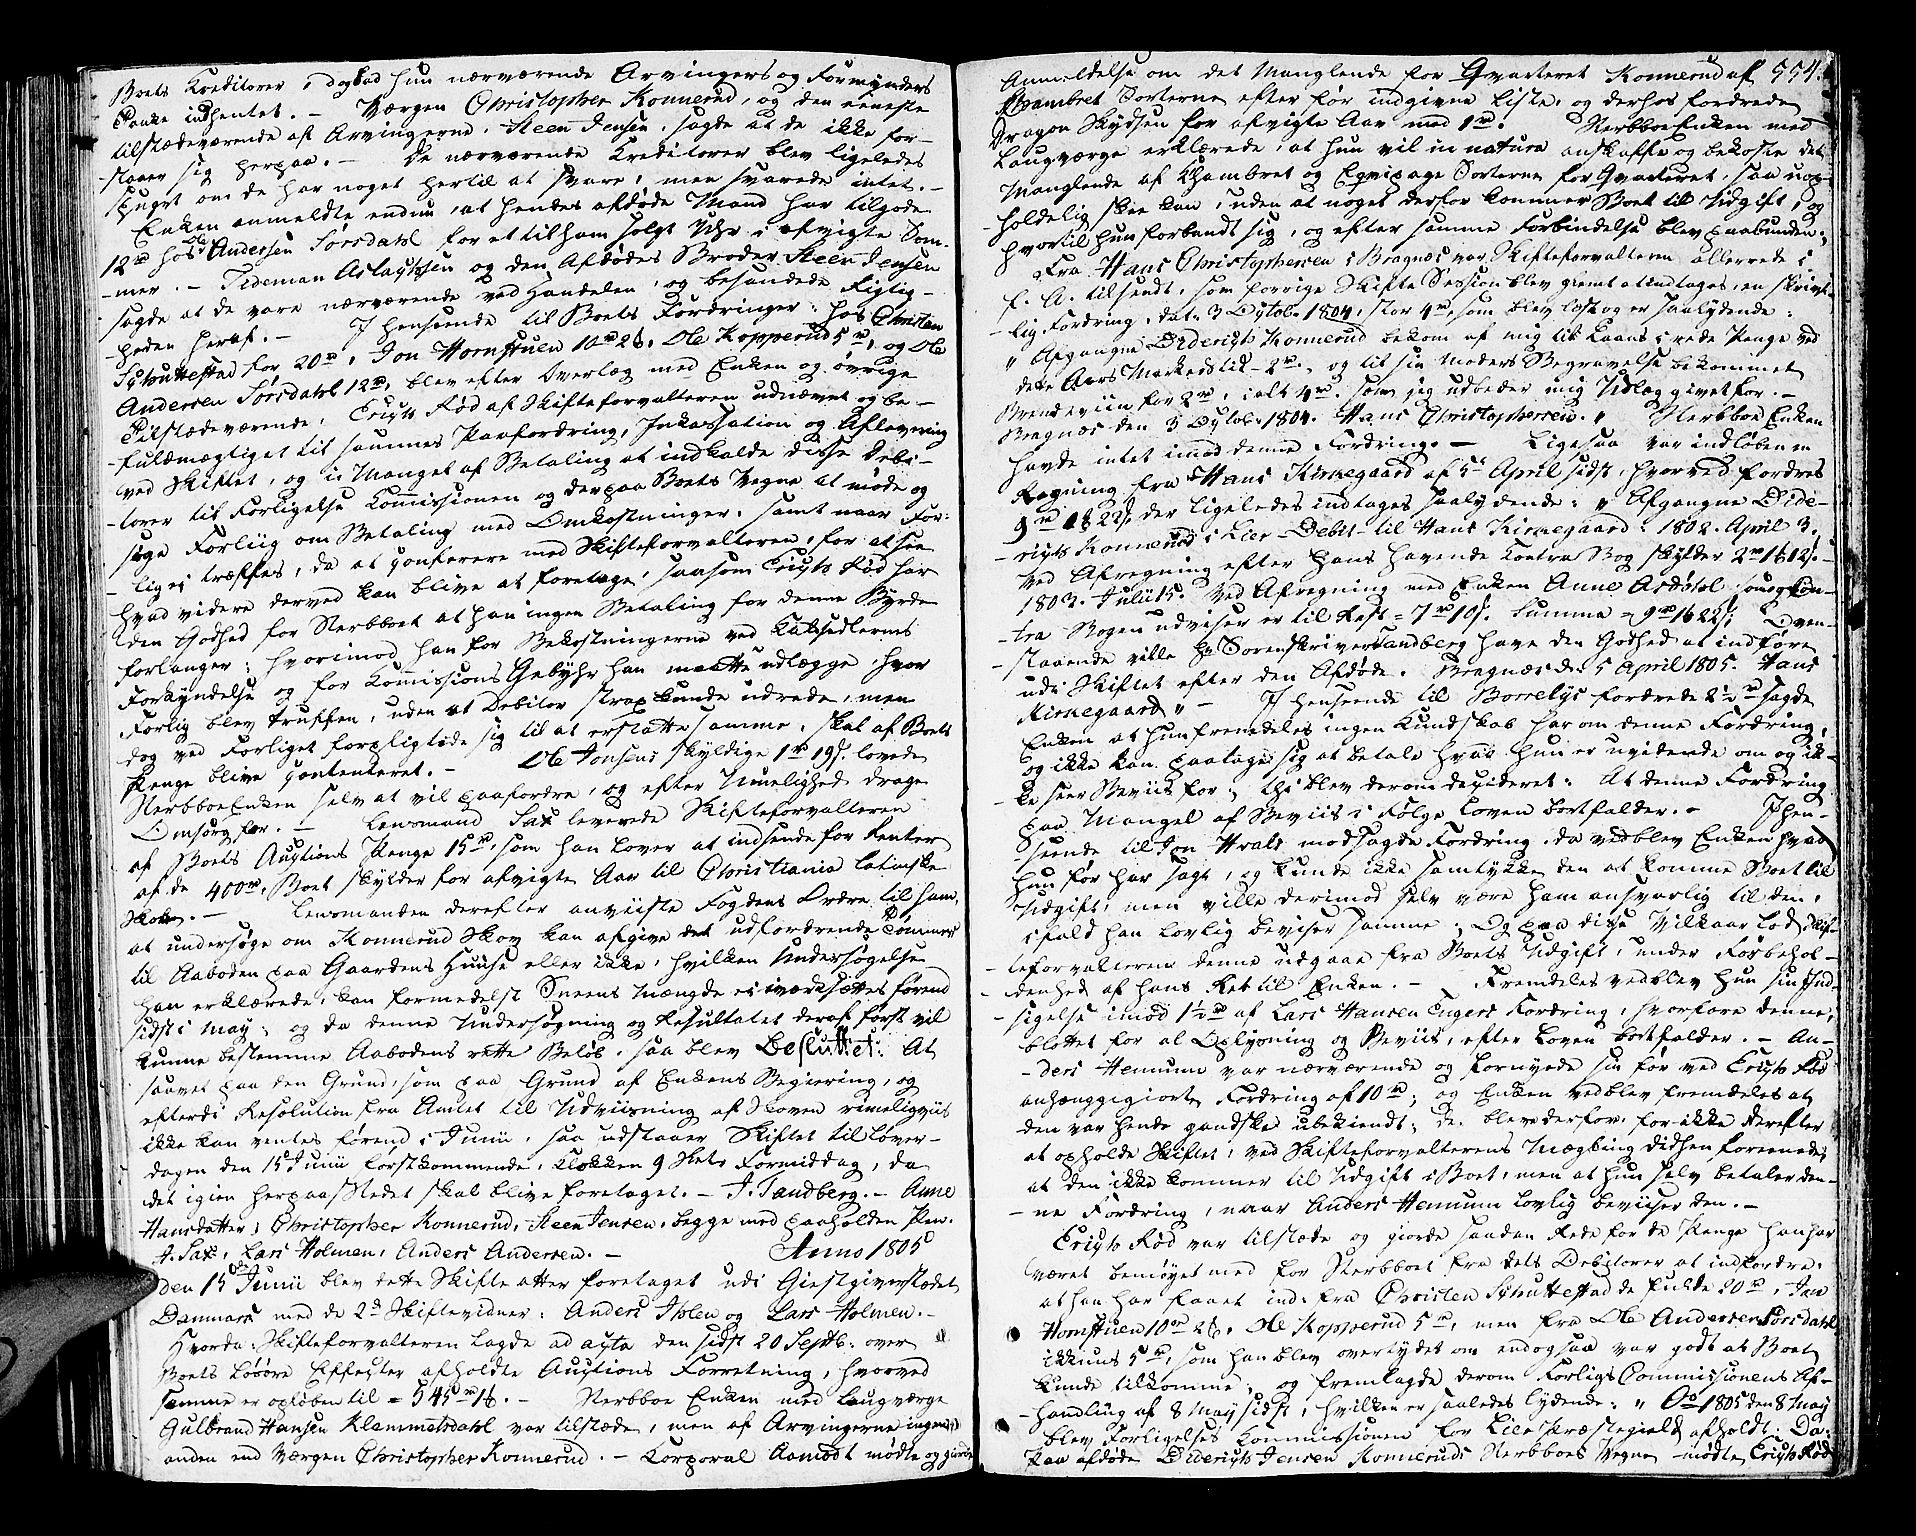 Boets Creditorer, dog kad hun nærværende Arvingers og Formynders
Tanke indhentet. – Værgen Christopher Konnerud, og den eeneste
tilstædeværende af Arvingerne, Steen Jensen, sagde at de ikke for-
staaer sig herpaa. – De nærværende Creditorer blev ligeledes
spurgt om de har noget hertil at svare, men svarede intet. –
Enken anmeldte endnu, at hendes afdøde Mand har tilgode
12 rd hos Ole Andersen Sørsdahl for et til ham solgt Uhr i afvigte Som-
mer. – Tideman Aslachsen og den Afdødes Broder Steen Jensen
sagde at de vare nærværende ved Handelen, og besandede Rigtig-
heden heraf. – I Henseende til Boets Fordringer: hos Christen
Schuttestad for 20 rd, Jon Hornstuen 10 rd 2 ß, Ole Kopperud 5 rd, og Ole
Andersen Sørsdahl 12 rd, blev efter Overlæg med Enken og øvrige
Tilstædeværende, Erich Rød af Skifteforvalteren udnævnt og be-
fuldmægtiget til sammes Paafordring, Inkassation og Aflevering
ved Skiftet, og i Mangel af Betaling at indkalde disse Debi-
torer til Forligelses Commissionen og der paa Boets Vegne at møde og
søge Forliig om Betaling med Omkostninger, samt naar For-
lig ei træffes, da at conferere med Skifteforvalteren, for at see
hvad videre derved kan blive at foretage, saasom Erich Rød har
den Godhed for Sterbboet at han ingen Betaling for denne Byrde
forlanger; hvorimod han for Bekostningerne ved Kaldsedlernes
Forkyndelse og for Commissions Gebyhr han maatte udlægge, hvor
Forlig blev truffen, uden at Debitor strax kunde udrede, men
dog ved Forliget forpligtede sig til at erstatte samme, skal af Boets
Penge blive contenteret. – Ole Jonsens skyldige 1 rd 19 ß. lovede
SterbboeEnken selv at vil paafordre, og efter Muelighed drage
Omsorg for. – Lensmand Sax leverede Skifteforvalteren
af Boets Auctions Penge 15 rd, som han lover at indsende for Renter
af de 400 rd, Boet skylder for afvigte Aar til Christiania latinske
Skole. – Lensmanden derefter anviiste Fogdens Ordre til ham,
at undersøge om Konnerud Skov kan afgive det udfordrende Tømmer
til Aaboden paa Gaardens Huuse eller ikke, hvilken Undersøgelse
han erklærede, kan formedelst Sneens Mængde ei iværksættes førend
sidst i May; og da denne Undersøgning og Resultatet deraf først vil
kunne bestemme Aabodens rette Beløb, saa blev Besluttet: At
saavel paa den Grund, som paa Grund af Enkens Begiering, og
efterdi Resolution fra Amtet til Udviisning af Skoven rimeligviis
ikke kan ventes førend i Junii, saa udstaaer Skiftet til Løver-
dagen den 15 Junii førstkommende, Klokken 9 Slet Formiddag, da
det igien herpaa Stedet skal blive foretaget. – J. Sandberg. – Anne
Hansdatter, Christopher Konnerud, Steen Jensen, begge med paaholden Pen.
A. Sax, Lars Holmen, Anders Andersen. – Anno 1805
den 15de Junii blev dette Skifte atter foretaget udi Giestgiverstedet
Danmark med de 2de Skiftevidner: Anders Ihlen og Lars Holmen. –
Hvorda: Skifteforvalteren lagde ad acta den sidst 20 Septb: over
Boets Løsøre Effecter afholdte Auctions Forretning, hvorved
samme er opløben til = 545 rd 1 ß. – Sterbboe Enken med Laugværge
Gulbrand Hansen Klemmetsdahl var tilstæde, men af Arvingerne ingen
anden end Værgen Christopher Konnerud. – Corporal Aamodt mødte og giorde
554.
Anmeldelse om det Manglende for Qvarteret Konnerud af
Chambret Sorterne efter før indgivne Liste, og derhos fordrede
Dragon Skydsen for afvigte Aar med 1 rd. SterbboeEnken med
Laugværge erklærede, at hun vil in natura anskaffe og bekoste det
Manglende af Chambret og Eqvipage Sorterne for Qvarteret, saa uop-
holdelig skee kan, uden at noget derfor kommer Boet til Udgift, og
hvortil hun forbandt sig, og efter samme Forbindelse blev paabunden;
Fra Hans Christophersen i Bragnæs var Skifteforvalteren allerede i
f. A. tilsendt, som forrige Skifte Session blev glemt at indtages, en skrivt-
lig Fordring, dat: 3 Octob: 1804, stor 4 rd, som blev læst og er saalydende:
" Afgangne Diderich Konnerud bekom af mig til Laans i rede Penge ved
dette Aars Marked 2 rd, og til sin Moders Begravelse bekommet
Brendeviin for 2 rd, ialt 4 rd. som jeg udbeder mig Udlag givet for. –
Bragnæs den 3 Octob: 1804. Hans Christophersen. " Sterbboe Enken
havde intet imod denne Fordring. – Ligesaa var indløben en
Regning fra Hans Kirkegaard af 5te April sidst, hvorved fordres
9 rd 1 ß 22 ß, der ligeledes indtages saalydende: " Afgangne Dide-
richs Konnerud i Lier Debit til Hans Kirkegaard: 1802. April 3.
ved Afregning efter Hans havende Contra Bog skylder 2 rd 1 ß 12 ß. –
1803. Julii 15. Ved Afregning med Enken Anne Asdøhl som og Kon-
tra Bogen udviser er til Rest = 7 rd 10 ß. Summa = 9 rd 1 ß 22 ß. Oven-
staaende ville Hr Sorenskriver Sandberg have den Godhed at indføre
udi Skiftet efter den Afdøde. Bragnæs d: 5 April 1805. Hans
Kirkegaard " – I Henseende til Borrelys fordrede 2½ rd sagde
Enken at hun fremdeles ingen Kundskab har om denne Fordring,
og ikke kan paatage sig at betale hvad hun er uvidende om og ik-
ke seer Beviis for; Thi blev derom decideret: At denne Fordring
paa Mangel af Beviis i Følge Loven bortfalder. – I Hen-
seende til Jon Hvals modsagte Fordring, da vedblev Enken hvad
hun før har sagt, og kunde ikke samtykke den at komme Boet til
Udgift, men ville derimod selv være ham ansvarlig til den,
ifald han lovlig beviser samme; Og paa disse Vilkaar lod Skif-
teforvalteren denne udgaae fra Boets Udgift, under Forbehol-
denhed af hans Ret til Enken. – Fremdeles vedblev hun sin Ind-
sigelse imod 1½ rd af Lars Hansen Engers Fordring, hvorfore denne,
blottet for al Oplysning og Beviis, efter Loven bortfalder. – An-
ders Hennum var nærværende og fornyede sin før ved Erich Rød
anhænggiorte Fordring af 10 rd; og Enken vedblev fremdeles at
den var hende gandske ubekiendt; Det blev derfor, for ikke derefter
at opholde Skiftet, ved Skifteforvalterens Mægling didhen foreenet;
at den ikke kommer til Udgift i Boet, men at hun selv betaler den-
ne Fordring, naar Anders Hennum lovlig beviiser den. –
Erich Rød var tilstæde og giorde saadan Rede for de Penge han har
været bemøyet med for Sterbboet fra dets Debitorer at indfordre:
at han har faaet ind: fra Christen Schuttestad de fulde 20 rd, Jon
Hornstuen 10 rd 2 ß, Ole Kopperud 5 rd, men fra Ole Andersen Sørsdahl
ikkuns 5 rd, som han blev overtydet om endogsaa var godt at Boet
kunde tilkomme, og fremlagde derom Forligs Commissionens Af-
handling af 8 May sidst, hvilken er saaledes lydende: " Ao 1805 den 8 May
blev Forligelses Commissionen for Lier Præstegield afholdt: Da:
Paa afdøde Diderich Jensen Konneruds Sterbboes Vegne mødte Erich Rød